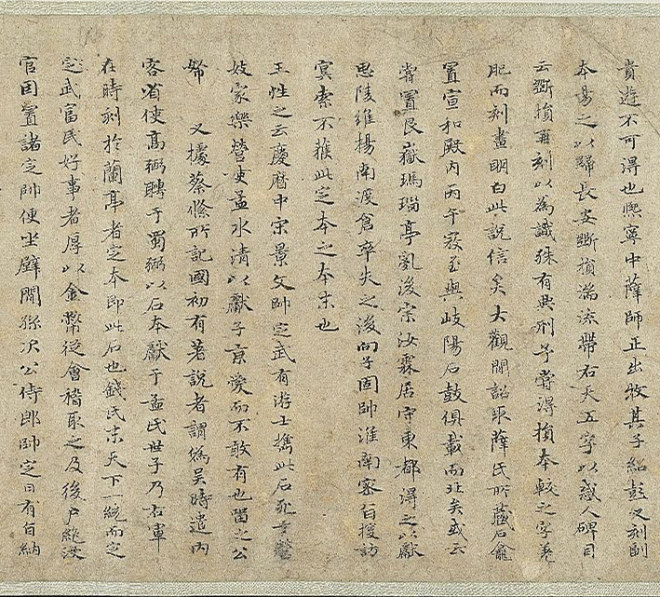 貴遊不可得也熙寧中薛師正出牧其子紹彭又刻副
本易之以歸長安斷損湍流帶右天五字以惑人碑目
云斷損再刻以為識殊有典刑予嘗得損本較之字差
肥而刻畫明白此說信矣大觀間詔取薛氏所藏石龕
置宣和殿內丙午寇至與岐陽石鼓俱載而北矣或云
嘗置艮嶽瑪瑙亭亂後宗汝霖居守東都得之以獻
思陵維揚南渡倉卒失之後向子固帥淮南密旨搜訪
冥索不獲此定本之本末也
王性之云慶曆中宋景文帥定武有遊士攜此石死于營
妓家樂營吏孟水清以獻子京愛而不敢有也留之公
帑 又據蔡絛所記國初有著說者謂為吳時遣內
客省使高弼聘于蜀弼以石本獻于孟氏世子乃右軍
在時刻於蘭亭者定本即此石也錢氏末天下一統而之
定武富民好事者厚以金幣從會稽取之及後戶絶沒
官因置諸定帥便坐壁間孫次公侍郎帥定日有旨納